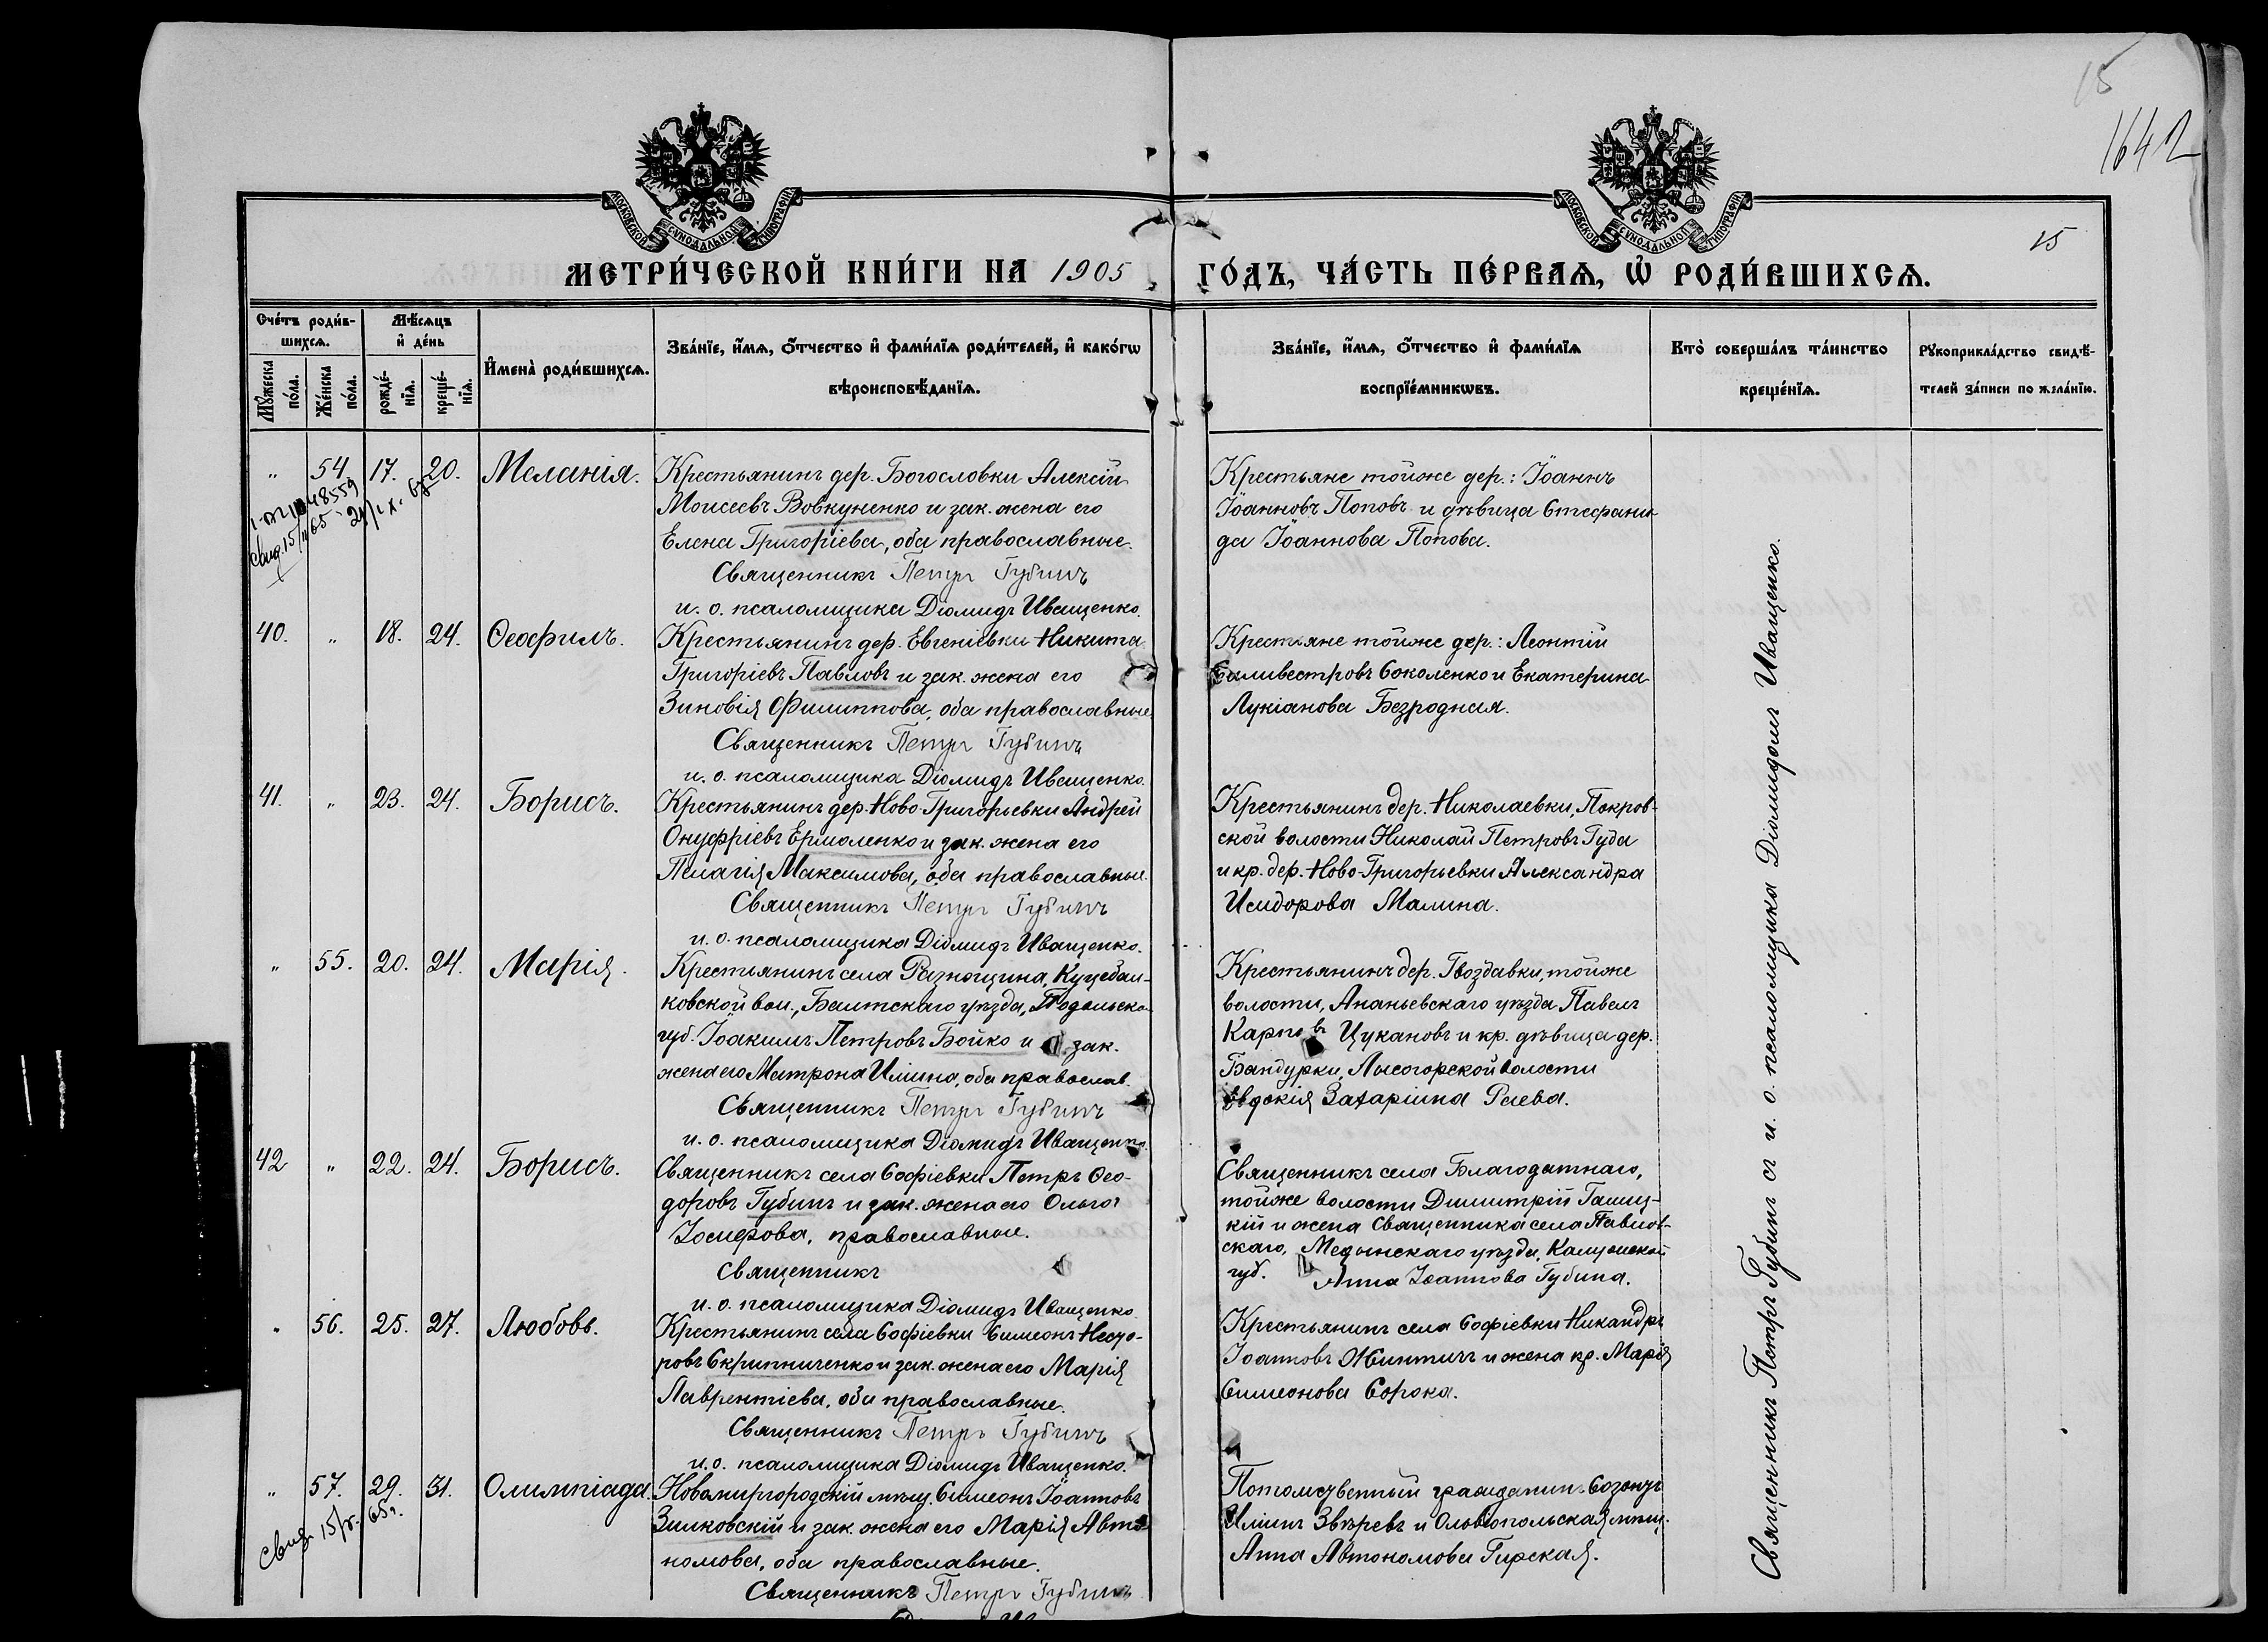 15
1642
15
МОСКОВСКОЙ СѴНОДАЛЬНОЙ ТИПОГРАФІИ
МОСКОВСКОЙ СѴНОДАЛЬНОЙ ТИПОГРАФІИ
МЕТРИ́ЧЕСКОЙ КНИ́ГИ НА 1905 ГО́ДЪ, ЧА́СТЬ ПЕ́РВАѦ, Ѡ҆ РОДИ́ВШИХСѦ.
Сче́тъ роди́в-
шихсѧ.
Мꙋ́жеска по́ла.
Же́нска по́ла.
Мѣ́сѧцъ
и҆ де́нь
рожде́-
нїѧ.
креще́-
нїѧ.
И҆мена̀ роди́вшихсѧ.
Зва́нїе, и҆́мѧ, ѻ҆́тчество и҆ фами́лїѧ роди́телей, и҆ како́гѡ
вѣроисповѣ́данїѧ.
Зва́нїе, и҆́мѧ, ѻ҆́тчество и҆ фами́лїѧ
воспрїе́мникѡвъ.
Кто̀ соверша́лъ та́инство
креще́нїѧ.
Рꙋкоприкла́дство свидѣ́-
телей за́писи по жела́нїю.
" 54. 17. 20. Меланія.
Крестьянинъ дер. Богословки Алексій
Моисеевъ Вовкуненко и зак. жена его
Елена Григоріева, оба православные.
Священникъ Петръ Губинъ
и. о. псаломщика Діомидъ Иващенко.
Крестьяне тойже дер.: Іоаннъ
Іоанновъ Поповъ и дѣвица Стефани-
да Іоаннова Попова.
40. " 18. 24. Ѳеофилъ.
Крестьянинъ дер. Евгеніевки Никита
Григоріевъ Павловъ и зак. жена его
Зиновія Филиппова, оба православные.
Священникъ Петръ Губинъ
и. о. псаломщика Діомидъ Иващенко.
Крестьяне тойже дер.: Леонтій
Силивестровъ Соколенко и Екатерина
Лукіанова Безродная.
41. " 23. 24. Борисъ.
Крестьянинъ дер. Ново-Григорьевки Андрей
Онуфріевъ Ермоленко и зак. жена его
Пелагія Максимова, оба православные.
Священникъ Петръ Губинъ
и. о. псаломщика Діомидъ Иващенко.
Крестьянинъ дер. Николаевки, Покров-
ской волости Николай Петровъ Гуда
и кр. дер. Ново-Григорьевки Александра
Исидорова Малина.
" 55. 20. 24. Марія.
Крестьянинъ села Куцебал-
ковской вол., Балтскаго уѣзда, Подольской
губ. Іоакимъ Петровъ Бойко и зак.
жена его Матрона Иліина, оба православ.
Священникъ Петръ Губинъ
и. о. псаломщика Діомидъ Иващенко.
Крестьянинъ дер. Гвоздавки, тойже
волости, Ананьевскаго уѣзда Павелъ
Карповъ Цукановъ и кр. дѣвица дер.
Бандурки, Лысогорской волости
Евдокія Захаріина Раева.
42 " 22. 24. Борисъ.
Священникъ села Софіевки Петръ Ѳео-
доровъ Губинъ и зак. жена его Ольга
Іосифова, православные.
Священникъ
и. о. псаломщика Діомидъ Иващенко
Священникъ села Благодатнаго,
тойже волости Димитрій
и жена священника села Павлов-
скаго, Медынскаго уѣзда, Калужской
губ. Анна Іоаннова Губина.
" 56. 25. 27. Любовь.
Крестьянинъ села Софіевки Симеонъ Несто-
ровъ Скрипниченко и зак. жена его Марія
Лаврентіева, оба православные.
Священникъ Петръ Губинъ
и. о. псаломщика Діомидъ Иващенко.
Крестьянинъ села Софіевки Никандръ
Іоанновъ и жена кр. Марія
Симеонова Сорока.
" 57. 29. 31. Олимпіада.
свид. 15/ 65г.
Новомиргородскій мѣщ. Симеонъ Іоанновъ
Зилковскій и зак. жена его Марія Авто-
номова, оба православные.
Священникъ Петръ Губинъ
Потомственный гражданинъ Созонтъ
Иліинъ Звѣревъ и Ольвіопольская мѣщ.
Анна Автономова Гирская.
Священникъ Петръ Губинъ съ и. о. псаломщика Діомидомъ Иващенко.